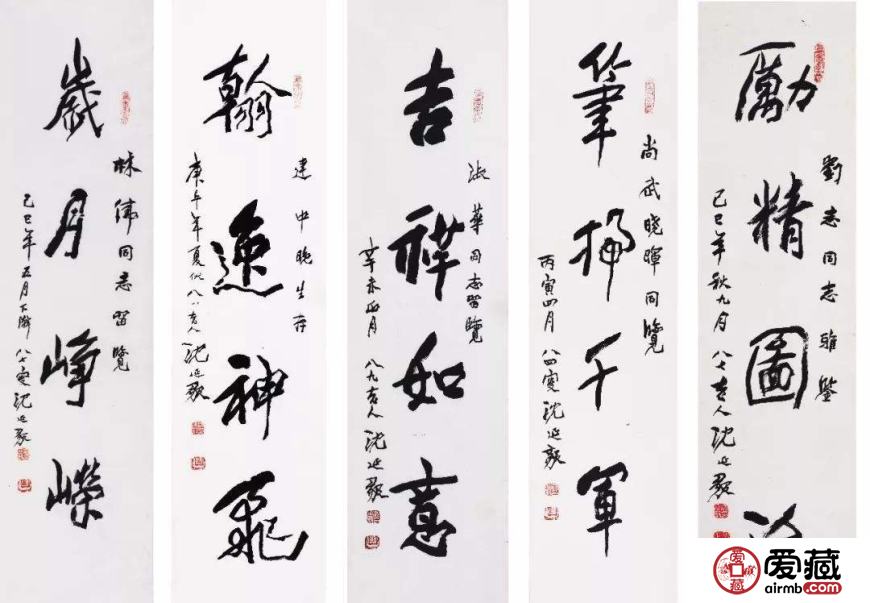 歲月崢嶸
林偉同志留覽
己巳年五月大
八七叟沈延毅
翰逸神飛
建中晚生存
庚午年夏
八八老人沈延毅
吉祥如意
淑華同志留覽
辛未正月
八九老人沈延毅
筆掃千軍
尚武曉暉同覽
丙寅四月
八四叟沈延毅
勵精圖
劉志同志雅鑒
己巳年秋九月
八七老人沈延毅
爱藏
airmb.com